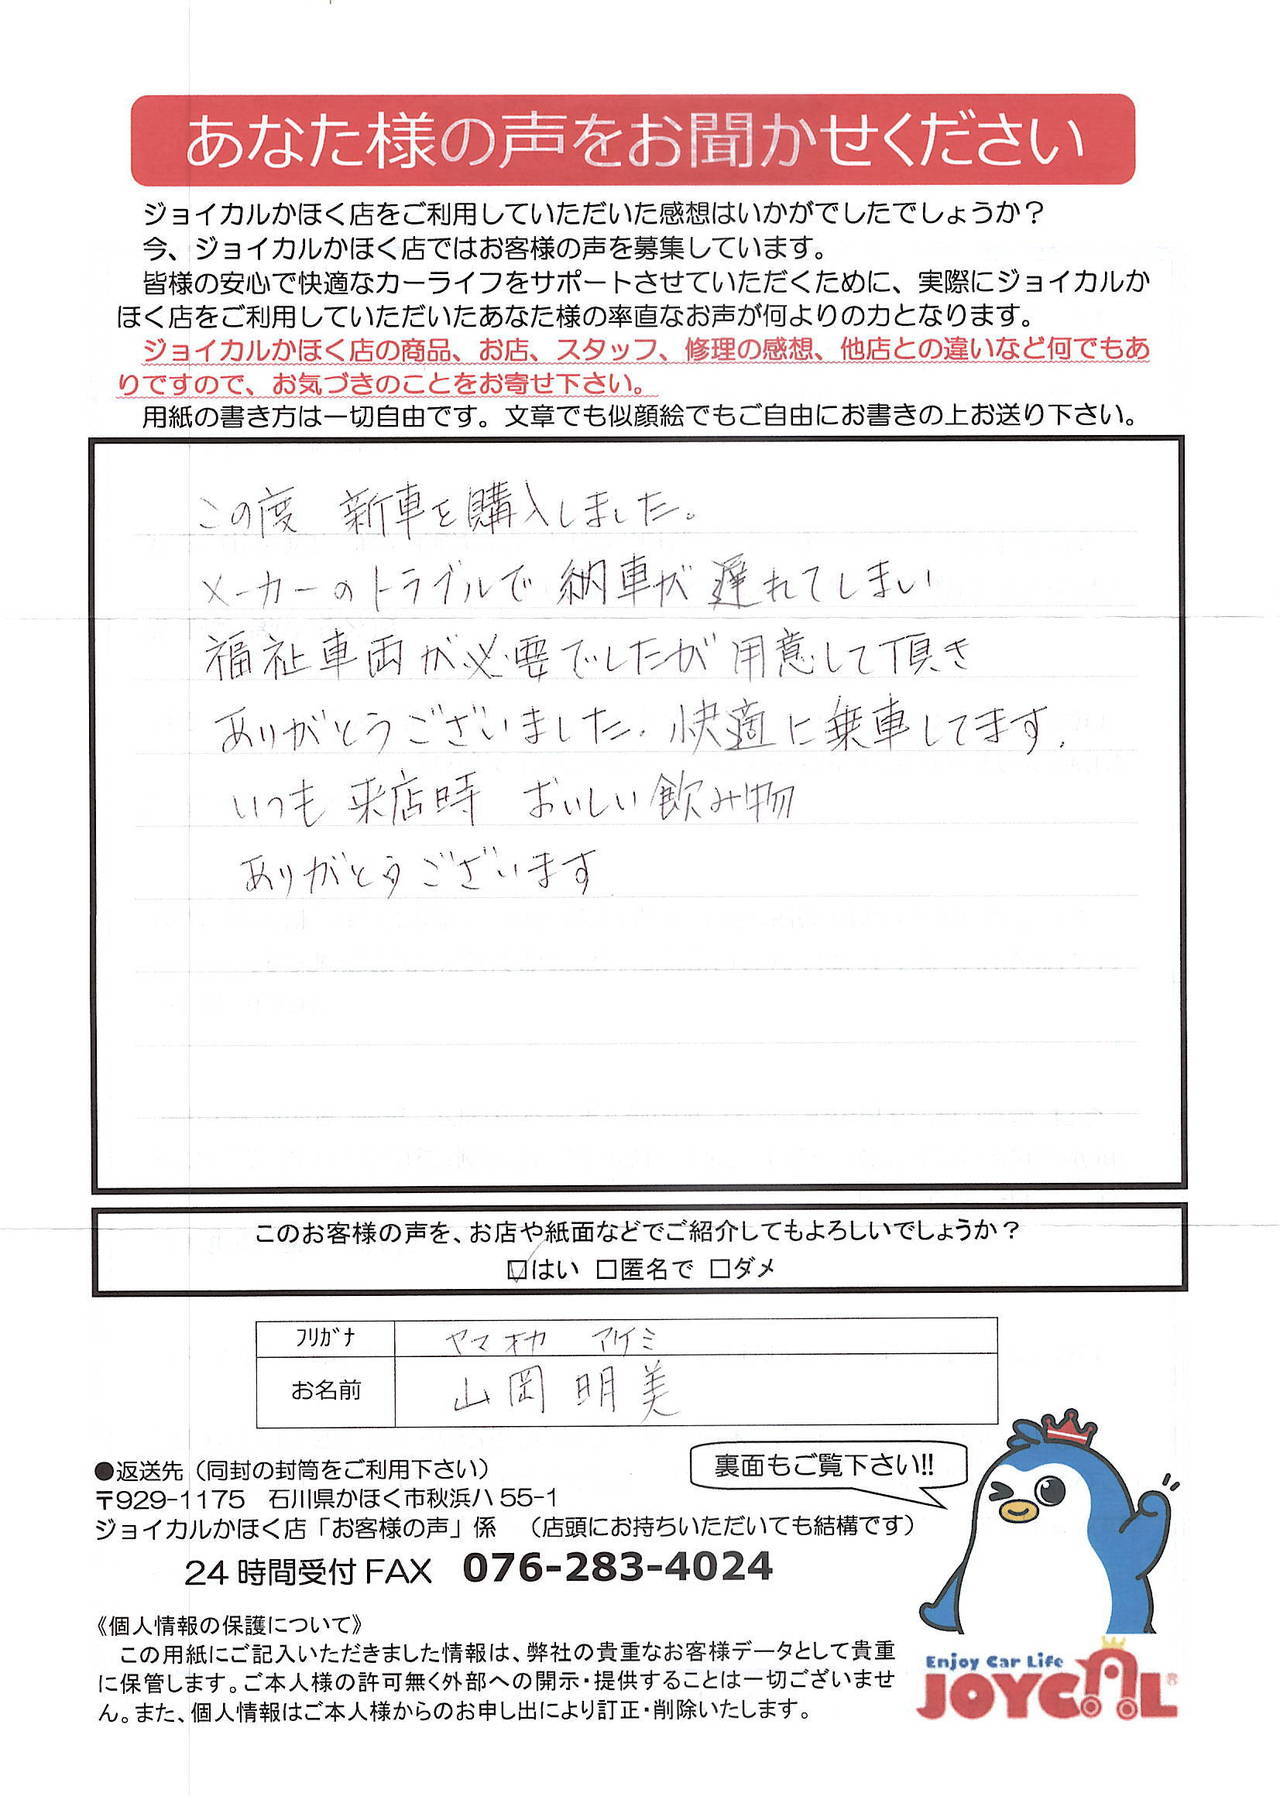 あなた様の声をお聞かせください
ジョイカルかほく店をご利用していただいた感想はいかがでしたでしょうか？
今、ジョイカルかほく店ではお客様の声を募集しています。
皆様の安心で快適なカーライフをサポートさせていただくために、実際にジョイカルか
ほく店をご利用していただいたあなた様の率直なお声が何よりの力となります。
ジョイカルかほく店の商品、お店、スタッフ、修理の感想、他店との違いなど何でもあ
りですので、お気づきのことをお寄せ下さい。
用紙の書き方は一切自由です。文章でも似顔絵でもご自由にお書きの上お送り下さい。
この度 新車を購入しました。
メーカーのトラブルで 納車が 遅れてしまい
福祉車両が必要でしたが 用意して頂き
ありがとうございました。快適に乗車してます。
いつも 来店時 おいしい飲み物
ありがとうございます
このお客様の声を、お店や紙面などでご紹介してもよろしいでしょうか？
☑はい □匿名で □ダメ
ﾌﾘｶﾞﾅ ヤマオカ アケミ
お名前 山岡 明美
裏面もご覧下さい!!
●返送先（同封の封筒をご利用下さい）
〒929-1175 石川県かほく市秋浜ハ55-1
ジョイカルかほく店「お客様の声」係 （店頭にお持ちいただいても結構です）
24時間受付FAX 076-283-4024
《個人情報の保護について》
この用紙にご記入いただきました情報は、弊社の貴重なお客様データとして貴重
に保管します。ご本人様の許可無く外部への開示・提供することは一切ございませ
ん。また、個人情報はご本人様からのお申し出により訂正・削除いたします。
Enjoy Car Life
JOYCAL®